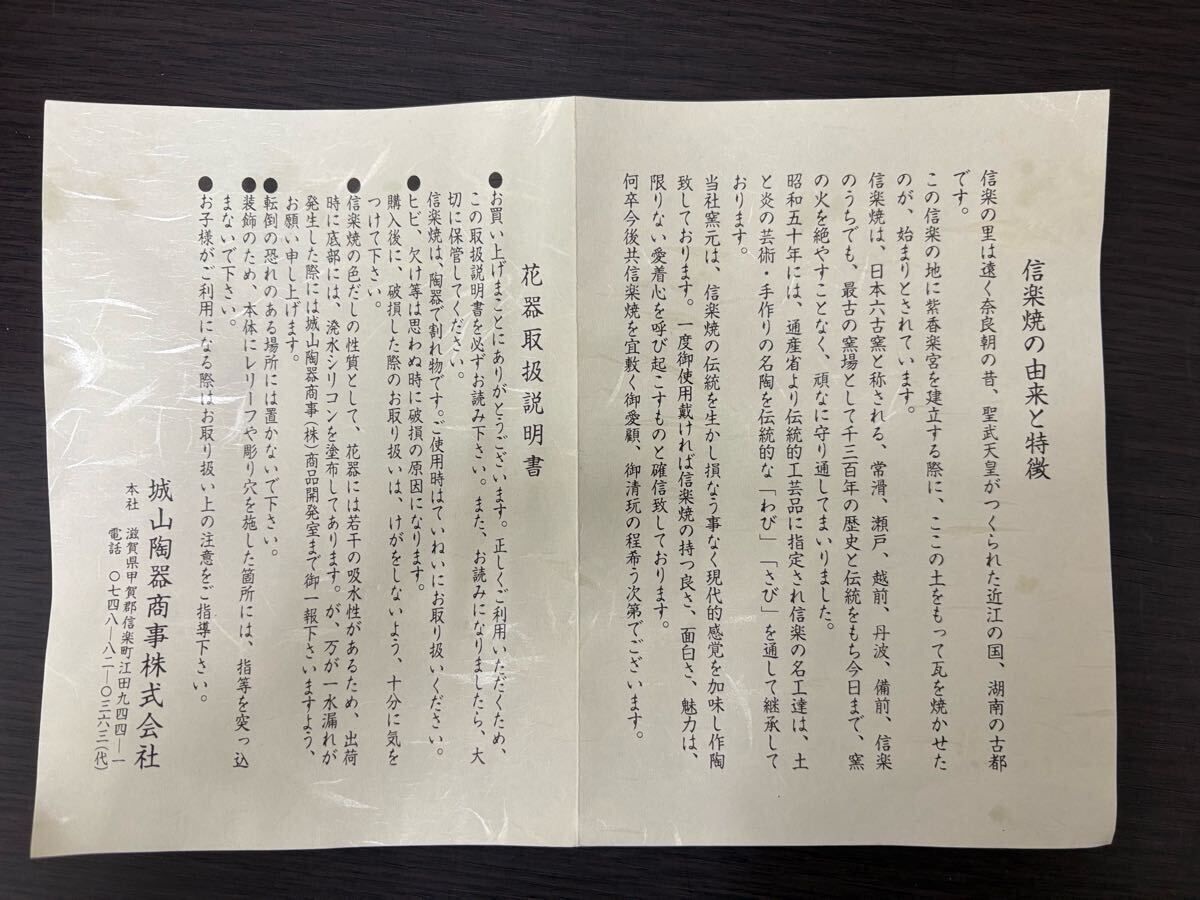 信楽焼の由来と特徴
信楽の里は遠く奈良朝の昔、聖武天皇がつくられた近江の国、湖南の古都
です。
この信楽の地に紫香楽宮を建立する際に、ここの土をもって瓦を焼かせた
のが、始まりとされています。
信楽焼は、日本六古窯と称される、常滑、瀬戸、越前、丹波、備前、信楽
のうちでも、最古の窯場として千三百年の歴史と伝統をもち今日まで、窯
の火を絶やすことなく、頑なに守り通してまいりました。
昭和五十年には、通産省より伝統的工芸品に指定され信楽の名工達は、土
と炎の芸術・手作りの名陶を伝統的な「わび」「さび」を通して継承して
おります。
当社窯元は、信楽焼の伝統を生かし損なう事なく現代的感覚を加味し作陶
致しております。一度御使用戴ければ信楽焼の持つ良さ、面白さ、魅力は、
限りない愛着心を呼び起こすものと確信致しております。
何卒今後共信楽焼を宜敷く御愛顧、御清玩の程希う次第でございます。
花器取扱説明書
●お買い上げまことにありがとうございます。正しくご利用いただくため、
この取扱説明書を必ずお読み下さい。また、お読みになりましたら、大
切に保管してください。
信楽焼は、陶器で割れ物です。ご使用時はていねいにお取り扱いください。
●ヒビ、欠け等は思わぬ時に破損の原因になります。
購入後に、破損した際のお取り扱いは、けがをしないよう、十分に気を
つけて下さい。
●信楽焼の色だしの性質として、花器には若干の吸水性があるため、出荷
時に底部には、溌水シリコンを塗布してあります。が、万が一水漏れが
発生した際には城山陶器商事(株)商品開発室まで御一報下さいますよう、
お願い申し上げます。
●転倒の恐れのある場所には置かないで下さい。
●装飾のため、本体にレリーフや彫り穴を施した箇所には、指等を突っ込
まないで下さい。
●お子様がご利用になる際はお取り扱い上の注意をご指導下さい。
城山陶器商事株式会社
本社 滋賀県甲賀郡信楽町江田九四四―一
電話 〇七四八―八二―〇三六三(代)